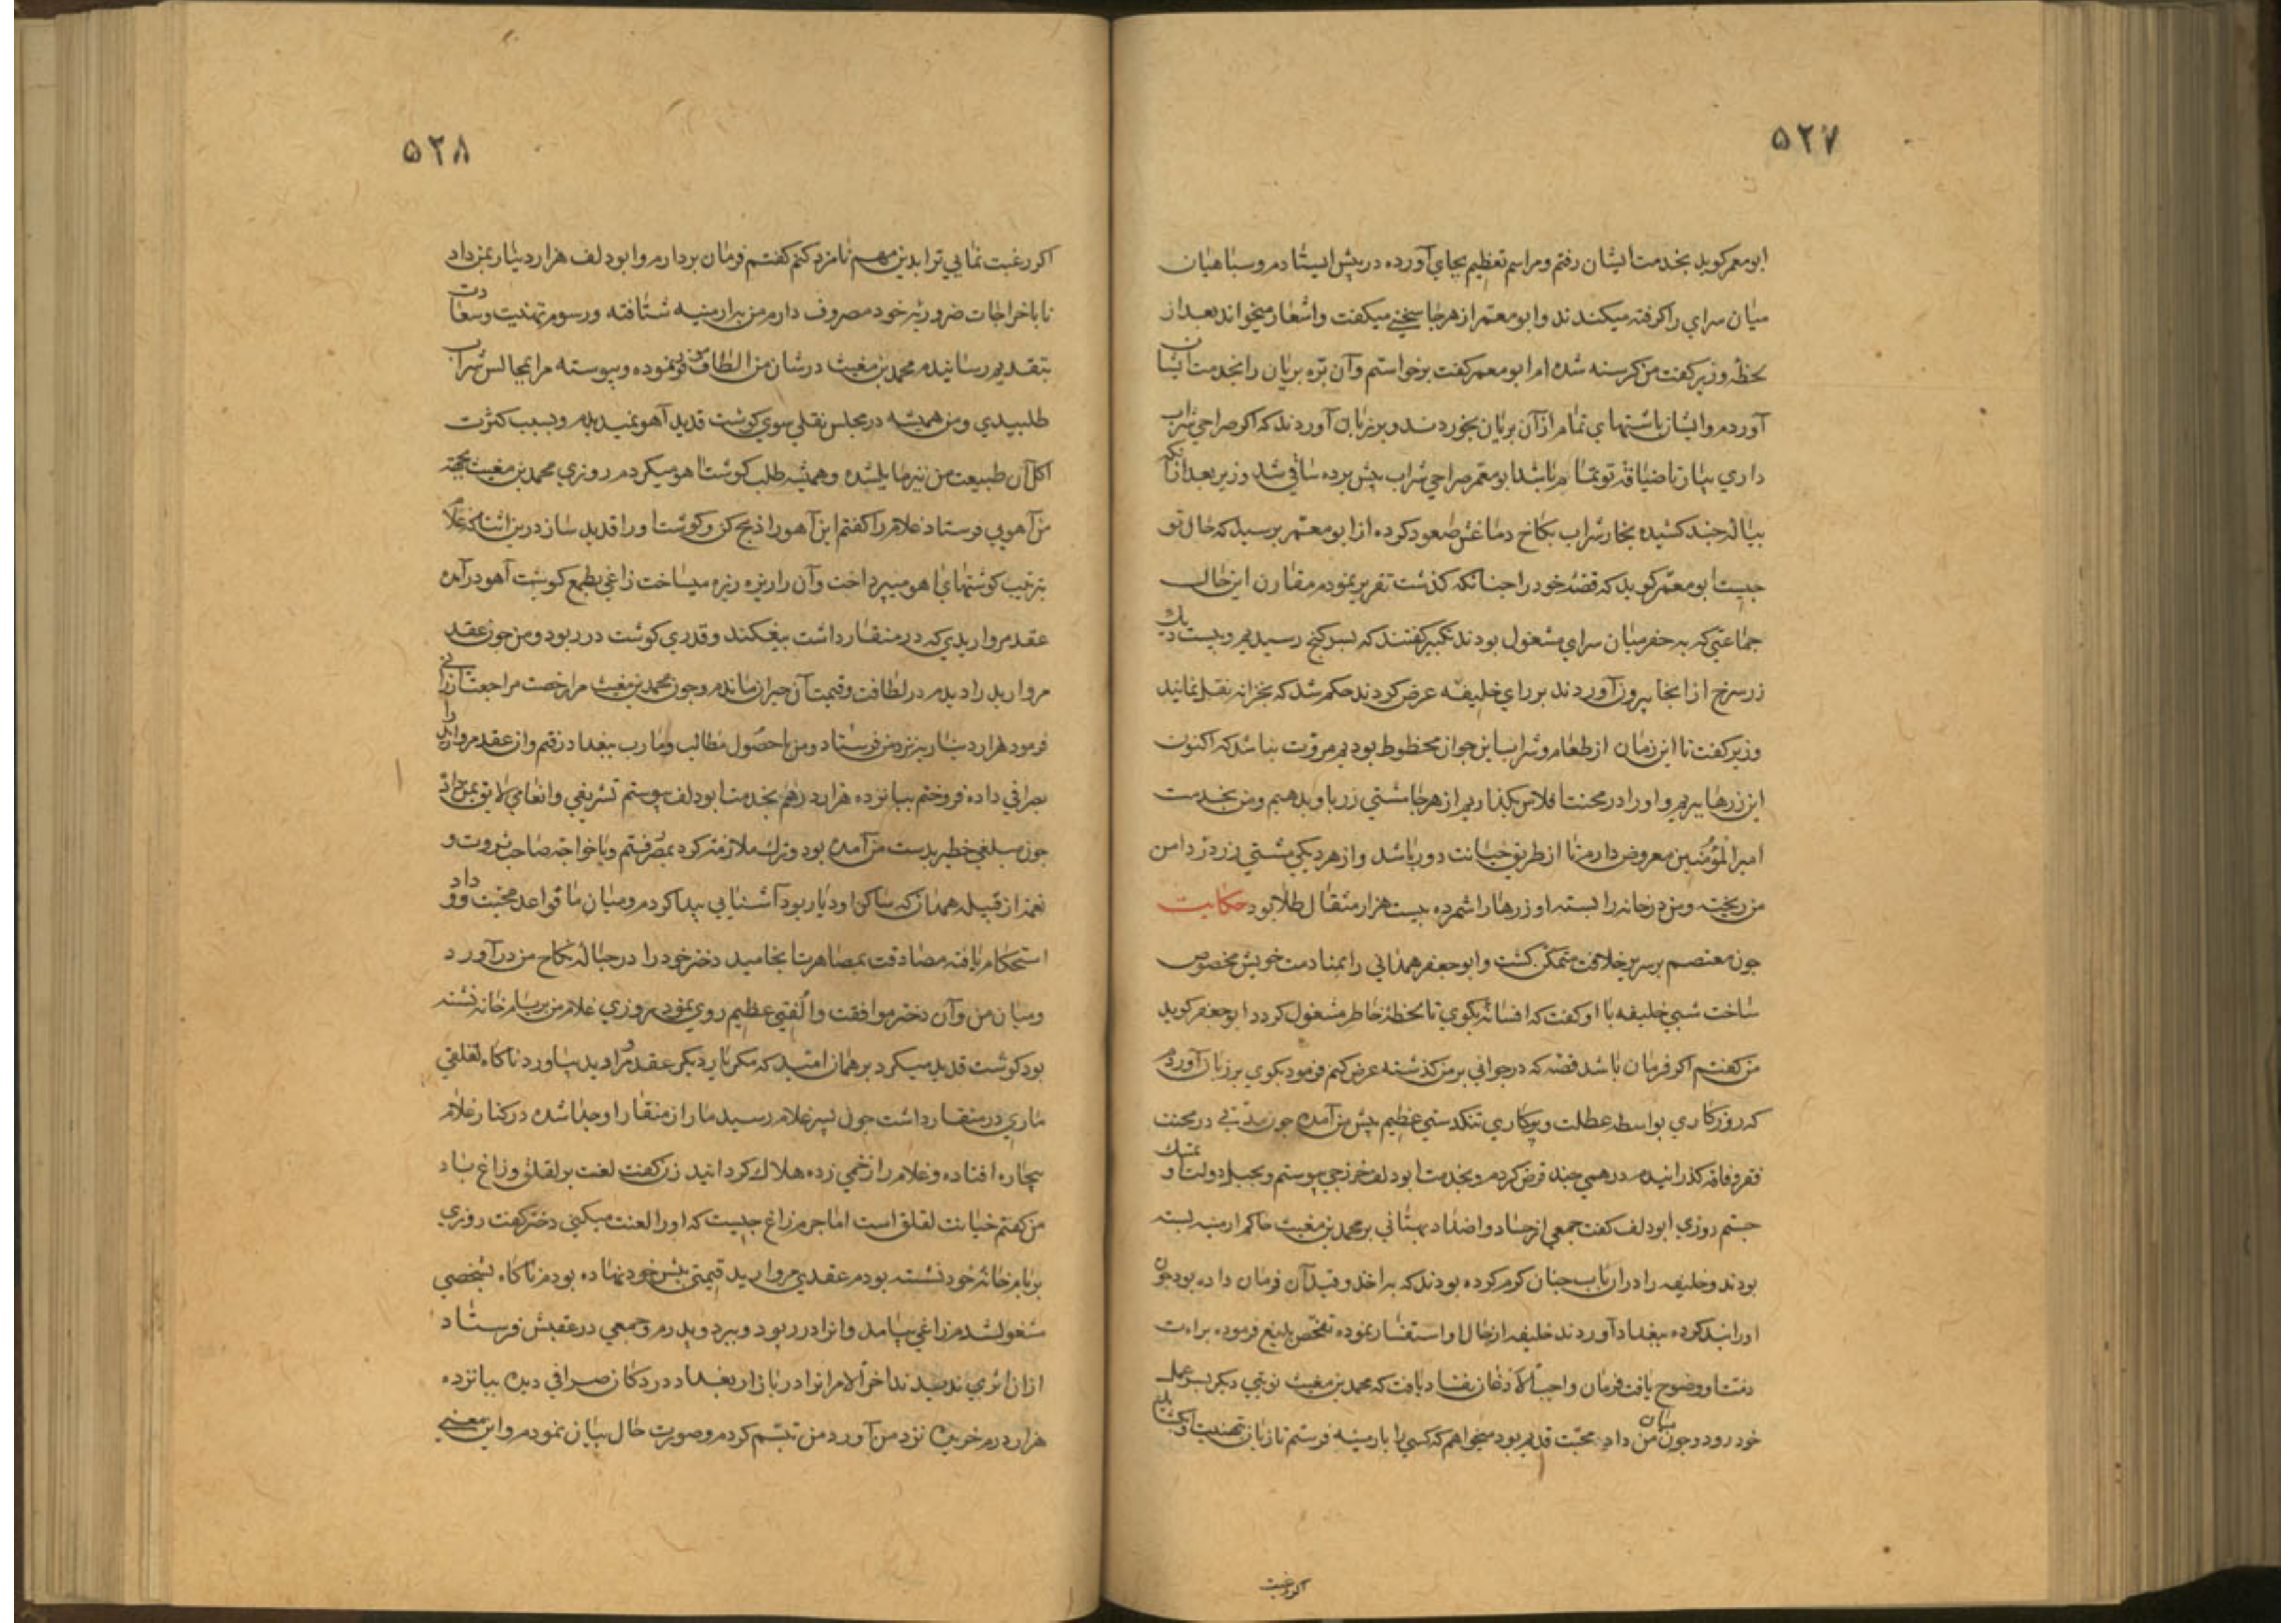 ۵۲۷
ابومعمر کوید بخدمت ایشان رفتم ومراسم تعظیم بجای آورده در پیش ایستادم وسپاهیان
میان سرای را کرفته میکندند وابومعمر از هرجا سخنی میکفت واشعار میخواند بعد از
لحظهٔ وزیر کفت من کرسنه شده ام ابومعمر کفت برخواستم وآن برّه بریان را بخدمت ایشان
آوردم وایشان باشتهای تمام از آن بریان بخوردند وبر زبان آوردند که اکر صراحی شراب
داری بیار تا ضیافة تو تمام باشد ابومعمر صراحی شراب پیش برده ساقی شد وزیر بعد از آنکه
پیالهٔ چند کشیده بخار شراب بکاخ دماغش صعود کرده از ابومعمر پرسید که حال تو
چیست ابومعمر کوید که قصهٔ خود را چنانکه کذشت تقریر نمودم مقارن این حال
جماعتی که به حفر میان سرای مشغول بودند تکبیر کفتند که بسر کنج رسیدیم وبیست دیك
زر سرخ از آنجا بیرون آوردند بر رای خلیفه عرض کردند حکم شد که بخزانه نقل نمایند
وزیر کفت تا این زمان از طعام وشراب این جوان محظوظ بودیم مروّت نباشد که اکنون
این زرها ببریم واورا در محنت افلاس بکذاریم از هرجا مشتی زر باو بدهیم ومن بخدمت
امیر المؤمنین معروض دارم تا از طریق خیانت دور باشد واز هر دیکی مشتی زر در دامن
من ریخته ومن در خانه را بسته او زرهارا شمرده بیست هزار مثقال طلا بود حکایت
چون معتصم بر سریر خلافت متمکن کشت وابوجعفر همدانی را بمنادمت خویش مخصوص
ساخت شبی خلیفه با او کفت که افسانه بکوی تا لحظهٔ خاطر مشغول کردد ابوجعفر کوید
من کفتم اکر فرمان باشد قصّه که در جوانی بر من کذشته عرض کنم فرمود بکوی بر زبان آوردم
که روزکاری بواسطه عطلت وبیکاری تنکدستی عظیم پیش من آمده چون مدّتی در محنت
فقر وفاقه کذرانیدم درهمی چند قرض کردم وبخدمت ابودلف خزرجی پیوستم وبحبل دولت او تمسّك
جستم روزی ابودلف کفت جمعی از حساد واضداد بهتانی بر محمد بن مغیث حاکم ارمنیه بسته
بودند وخلیفه را در آن باب چنان کرم کرده بودند که به اخذ وقید آن فرمان داده بود چون
اورا بند کرده ببغداد آوردند خلیفه از حال او استفسار نموده تفحّص بلیغ فرموده براءت
ذمت او وضوح یافت فرمان واجب الاذعان نفاذ یافت که محمد بن مغیث نوبتی دیکر بسر عمل
خود رود وچون میان من واو محبّت قدیم بود میخواهم که کسی را بارمنیه فرستم تا زبان بتهنیت او بکشاید
اکر رغبت
۵۲۸
اکر رغبت نمایی ترا بدین مهم نامزد کنم کفتم فرمان بردارم وابودلف هزار دینار بمن داد
تا باخراجات ضروریهٔ خود مصروف دارم من بارمنیه شتافته ورسوم تهنیت وسعادت
بتقدیم رسانیدم محمد بن مغیث در شان من الطاف موفور نموده وپیوسته مرا بمجالس شراب
طلبیدی ومن همیشه در مجلس نقلی سوی کوشت قدید آهو نمیدیدم وبسبب کثرت
اکل آن طبیعت من نیز مایل شده وهمیشه طلب کوشت آهو میکردم روزی محمد بن مغیث بجهة
من آهویی فرستاد غلام را کفتم این آهورا ذبح کن وکوشت اورا قدید ساز درین اثنا که غلام
بترتیب کوشتهای آهو میپرداخت وآن را ریزه ریزه میساخت زاغی بطمع کوشت آهو در آمده
عقد مرواریدی که در منقار داشت بیفکند وقدری کوشت در ربود ومن چون عقد
مروارید را دیدم در لطافت وقیمت آن حیران ماندم وچون محمد بن مغیث مرا رخصت مراجعت ارزانی
فرمود هزار دینار نیز نزد من فرستاد ومن با حصول مطالب ومآرب ببغداد رفتم وآن عقد مروارید را
بصرافی داده فروختم بپانزده هزار درهم بخدمت ابودلف پیوستم تشریفی وانعامی لایق بمن داد
چون مبلغی خطیر بدست من آمده بود وترك ملازمت کرده بمصر رفتم وبا خواجه صاحب ثروت و
نعمت از قبیله همدان که ساکن او دیار بود آشنایی پیدا کردم ومیان ما قواعد محبت ووداد
استحکام یافته مصادقت بمصاهرت انجامید دختر خود را در حبالهٔ نکاح من در آورد
ومیان من وآن دختر موافقت والفتی عظیم روی نمود روزی غلام من بر بام خانه نشسته
بود کوشت قدید میکرد بر همان امّید که مکر بار دیکر عقد مروارید بیاورد ناکاه لقلقی
ماری در منقار داشت چون بسر غلام رسید مار از منقار او جدا شده در کنار غلام
بیچاره افتاده وغلام را زخمی زده هلاك کردانید زن کفت لعنت بر لقلق وزاغ باد
من کفتم خیانت لقلق است اما جرم زاغ چیست که اورا لعنت میکنی دختر کفت روزی
بر بام خانهٔ خود نشسته بودم عقدی مروارید قیمتی پیش خود نهاده بودم ناکاه بشخصی
مشغول شدم زاغی بیامد وانرا در ربود وببرد وپدرم جمعی در عقبش فرستاد
از ان اثری ندیدند اخر الامر انرا در بازار بغداد در دکان صرافی دیده بپانزده
هزار درم خریده نزد من آورد من تبسّم کردم وصورت حال بیان نمودم واین معنی